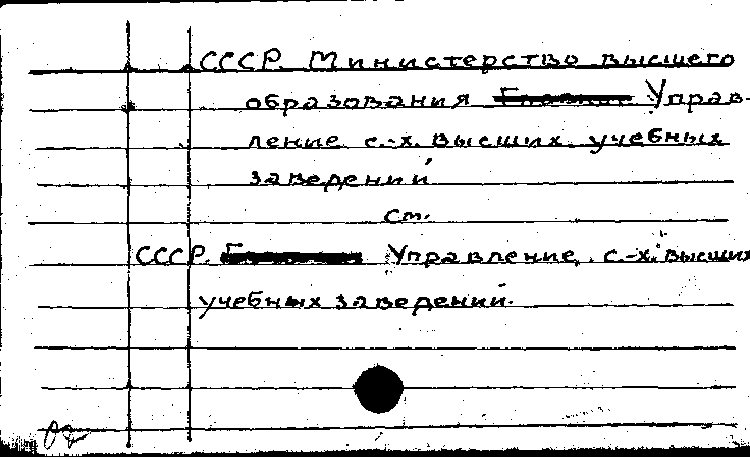 СССР. Министерство высшего
образования Управ-
ление с.-х. высших учебных
заведений
см.
СССР. Управление с.-х. высших
учебных заведений.